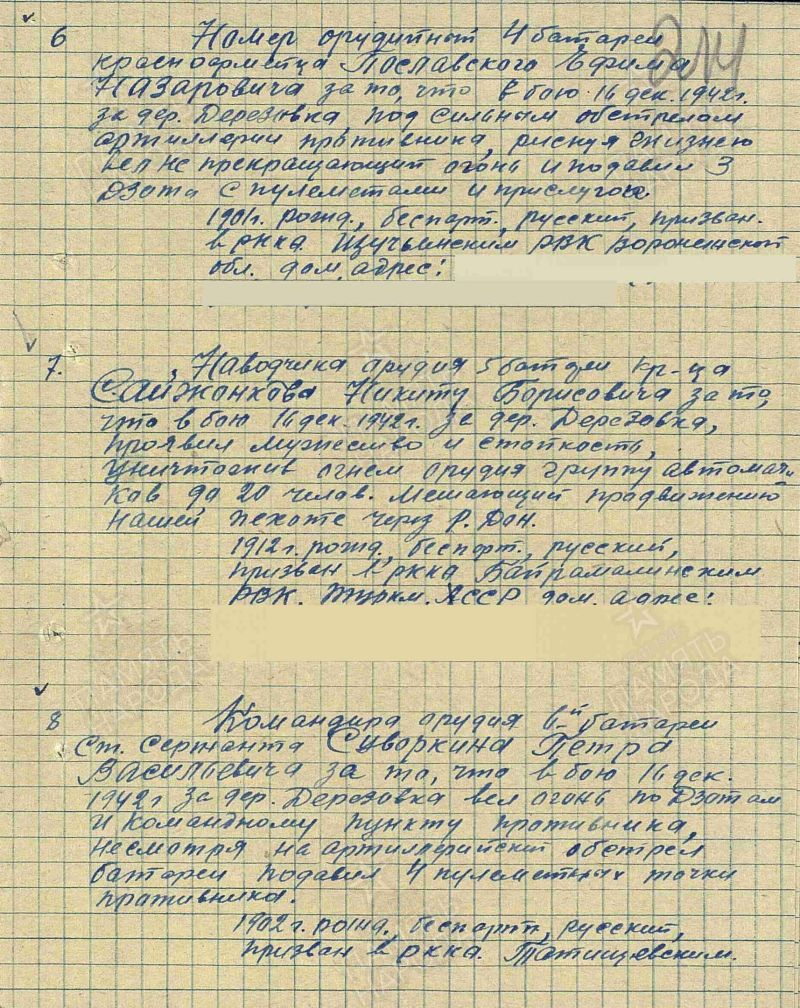 6 Номер орудийный 4 батареи
красноармейца Пославского Ефима
Назаровича за то, что в бою 16 дек. 1942 г.
за дер. Дерезовка под сильным обстрелом
артиллерии противника, рискуя жизнею
вел не прекращающий огонь и подавил 3
Дзота с пулеметами и прислугой
1901 г. рожд., беспарт., русский, призван.
в РККА Щучьинским РВК Воронежской
обл. дом. адрес:
7. Наводчика орудия 5 батареи кр-ца
Сайжонкова Никиту Борисовича за то,
что в бою 16 дек. 1942 г. за дер. Дерезовка,
проявил мужество и стойкость,
уничтожив огнем орудия группу автоматчи
ков до 20 челов. мешающий продвижению
нашей пехоте через р. Дон.
1912 г. рожд., беспарт., русский,
призван в РККА Байрамалинским
РВК. Туркм. ССР дом. адрес:
8 Командира орудия 6-й батареи
Ст. сержанта Суворкина Петра
Васильевича за то, что в бою 16 дек.
1942 г за дер. Дерезовка вел огонь по Дзотам
и командному пункту противника,
несмотря на артиллерийский обстрел
батареи подавил 4 пулеметных точки
противника.
1902 г. рожд., беспарт., русский,
призван в РККА. Татищевским.
ПАМЯТЬ
НАРОДА